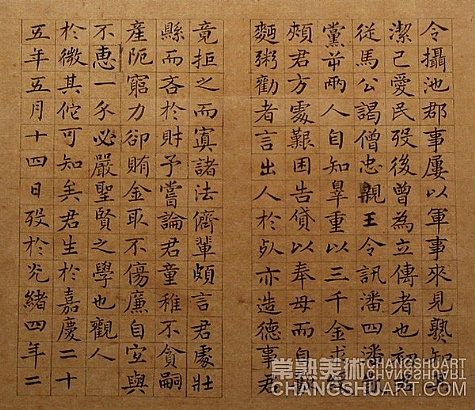 令攝池郡事屢以軍事來見熟
潔己愛民歿後曾為立傳者也初
從馬公謁僧忠親王令訊潘四潘
黨並兩人自知辠重以三千金求
頗君方處艱困告貸以奉母而自
麪粥勸者言出人於死亦造德事君
竟拒之而寘諸法儕輩頗言君處壯
縣而吝於財予嘗論君童稚不貪嗣
產阨窮力卻賄金取不傷廉自安與
不惠一介必嚴聖賢之學也觀人
於微其佗可知矣君生於嘉慶二十
五年五月十四日歿於光緒四年二
常熟美術 CHANGSHUART
CHANGSHUART.COM